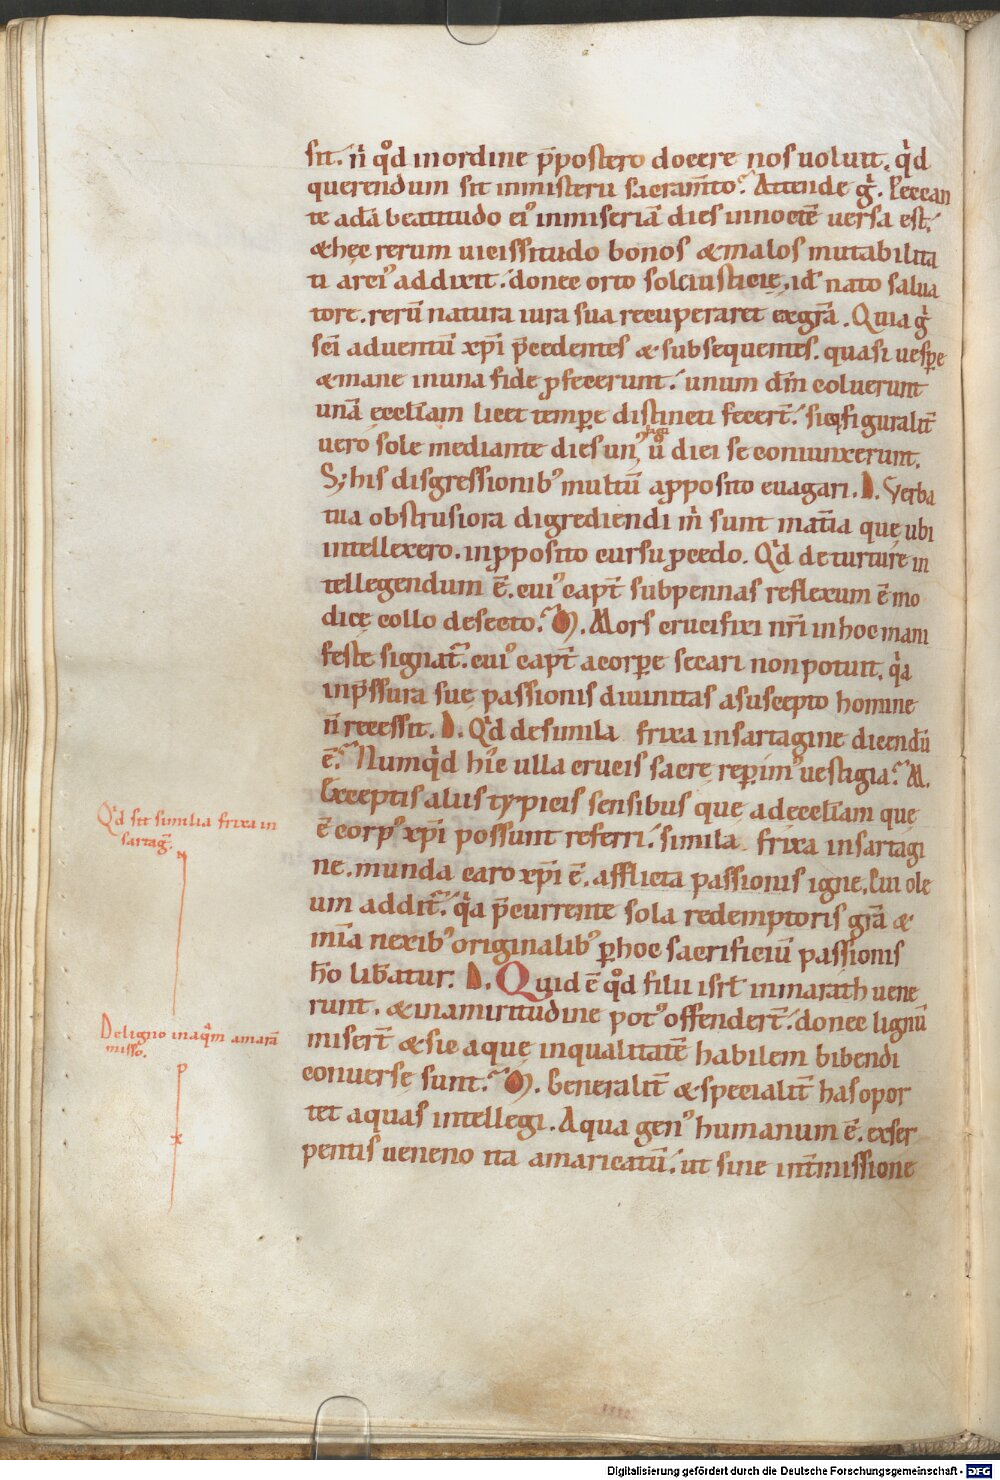 sit. n̄ qͦd inordine p̄postero docere nos uoluit. qͥd
querendum sit inmisterii sacram̄to? Attende gͥ. Peccan
te adā beatitudo eiꝰ inmiseriā dies innoctē uersa est.
&hęc rerum uicissitudo bonos &malos mutabilita
ti arciꝰ addixit. donec orto sole iusticię, id nato salua
tore. rerū natura iura sua recuperaret exgr̄a. Quia gͥ
sc̄i aduentū xp̄i p̄cedentes &subsequentes. quasi uesꝑe
&mane inuna fide ꝓfecerunt. unum dn̄m coluerunt
unā eccl̄iam licet temꝑe distincti fecer̄t. sicq; figuralit̄
uero sole mediante dies un, diei se coniunxerunt.
S; his disgressionibꝰ multū aꝓposito euagari. D. Verba
tua obstrusiora digrediendi m̄ sunt mat̄ia quę ubi
intellexero. inꝓposito cursu ꝓcedo. Qͥd deturture in
tellegendum ē. cuiꝰ capt̄ subpennas reflexum ē mo
dicę collo desecto. M. Mors crucifixi nr̄i inhoc mani
feste signat̄. cuiꝰ capt̄ acorꝑe secari nonpotuit. qͥa
inp̄ssura suę passionis diuinitas asuscepto homine
n̄ recessit. D. Qͥd desimila frixa insartagine dicendū
ē? Numqͥd hic ulla crucis sacrę reꝑimꝰ uestigia? M.
Exceptis aliis typicis sensibus quę adeccl̄iam que
ē corpꝰ xp̄i possunt referri. simila frixa insartagi
ne. munda caro xp̄i ē. afflicta passionis igne. Cui ole
um addit̄. qͥa p̄currente sola redemptoris gr̄a &
mīa nexibꝰ originalibꝰ ꝑhoc sacrificiū passionis
hō lib̄atur. D. Quid ē qͦd filii isrl̄ inmarath uene
runt. &inamiritudine potꝰ offender̄t. donec lignū
miser̄t &sic aque inqualitatē habilem bibendi
conuersę sunt? M. Generalit̄ &specialit̄ has opor
tet aquas intellegi. Aqua genꝰ humanum ē. exser
pentis ueneno ita amaricatū. ut sine int̄missione
Qͥd sit similia frixa in
sartaḡ.
De ligno inaqͣm amarā
misso.
Digitalisierung gefördert durch die Deutsche Forschungsgemeinschaft - DFG